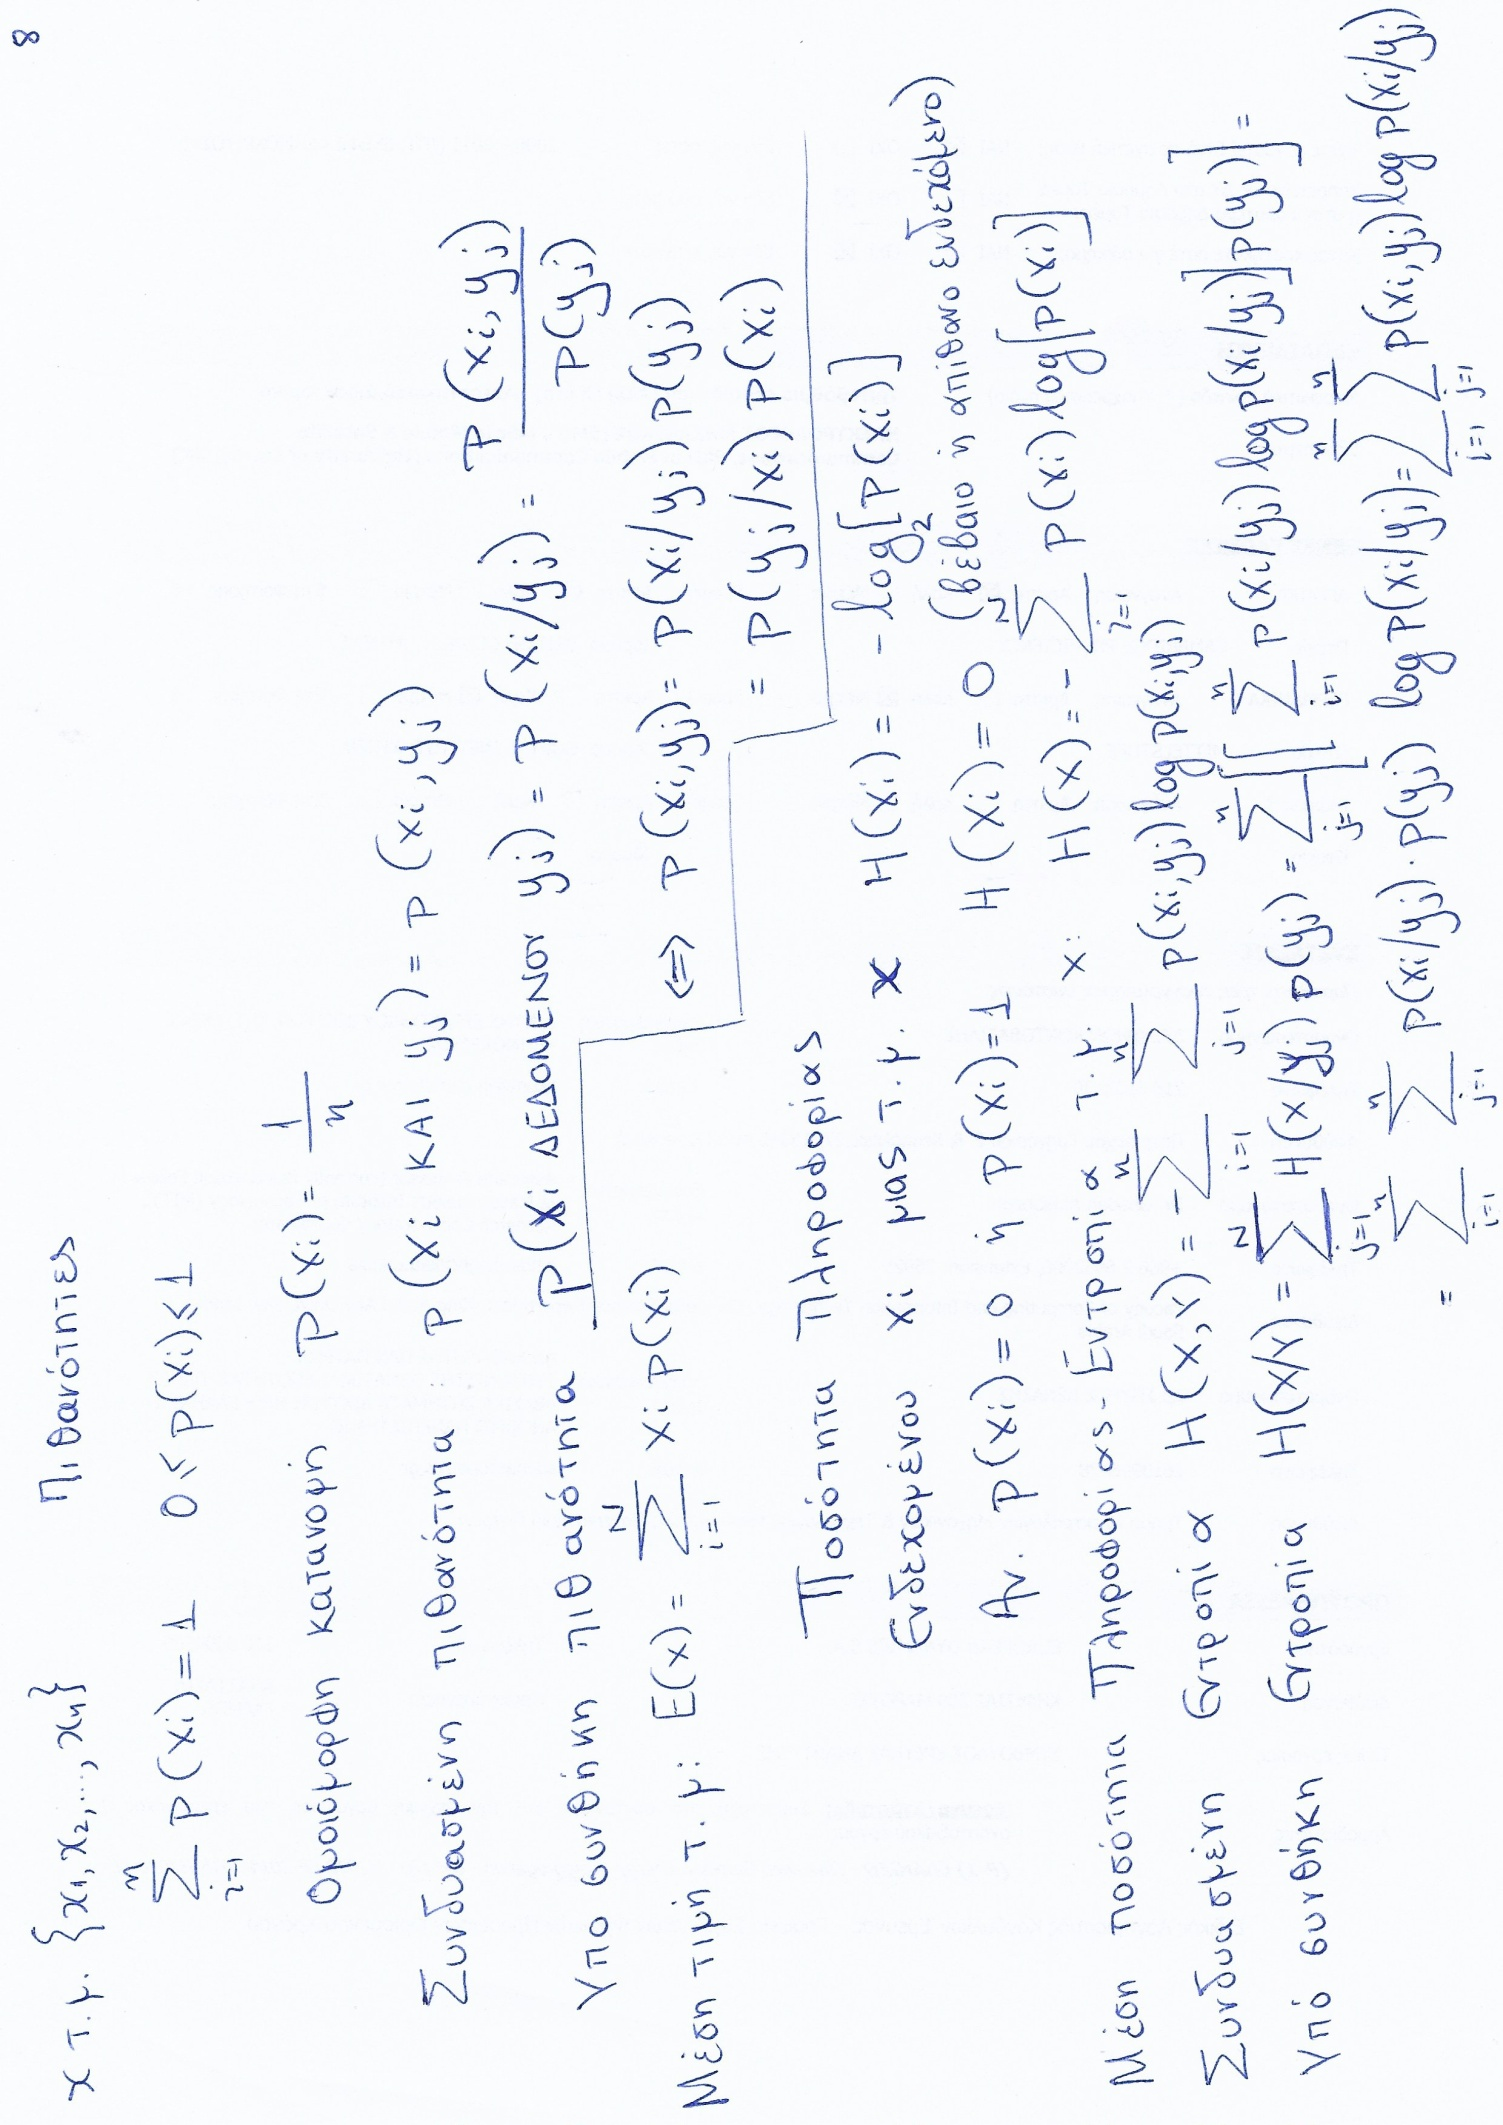 8
x τ.μ. {x1, x2, ..., xn} Πιθανότητες
n Σ i=1 P(xi) = 1 0 ≤ P(xi) ≤ 1
Ομοιόμορφη κατανομή P(xi) = 1/n
Συνδυασμένη πιθανότητα P(xi ΚΑΙ yj) = P(xi, yj)
Υπο συνθήκη πιθανότητα P(xi ΔΕΔΟΜΕΝΟΥ yj) = P(xi/yj) = P(xi, yj) / P(yj)
Μέση τιμή τ.μ: E(x) = N Σ i=1 xi P(xi) ⇔ P(xi, yj) = P(xi/yj) P(yj)
= P(yj/xi) P(xi)
Ποσότητα Πληροφορίας
Ενδεχομένου xi μιας τ.μ. x H(xi) = -log2[P(xi)]
Αν. P(xi) = 0 ή P(xi) = 1 H(xi) = 0 (βέβαιο ή απίθανο ενδεχόμενο)
Μέση ποσότητα Πληροφορίας - Εντροπία τ.μ x: H(x) = - N Σ i=1 P(xi) log[P(xi)]
Συνδυασμένη Εντροπία H(X,Y) = - n Σ i=1 n Σ j=1 P(xi, yj) log P(xi, yj)
Υπό συνθήκη Εντροπία H(X/Y) = N Σ j=1 H(X/yj) P(yj) = n Σ j=1 [[ n Σ i=1 P(xi/yj) log P(xi/yj)] P(yj)] =
= n Σ i=1 n Σ j=1 P(xi/yj) · P(yj) log P(xi/yj) = n Σ i=1 n Σ j=1 P(xi, yj) log P(xi/yj)